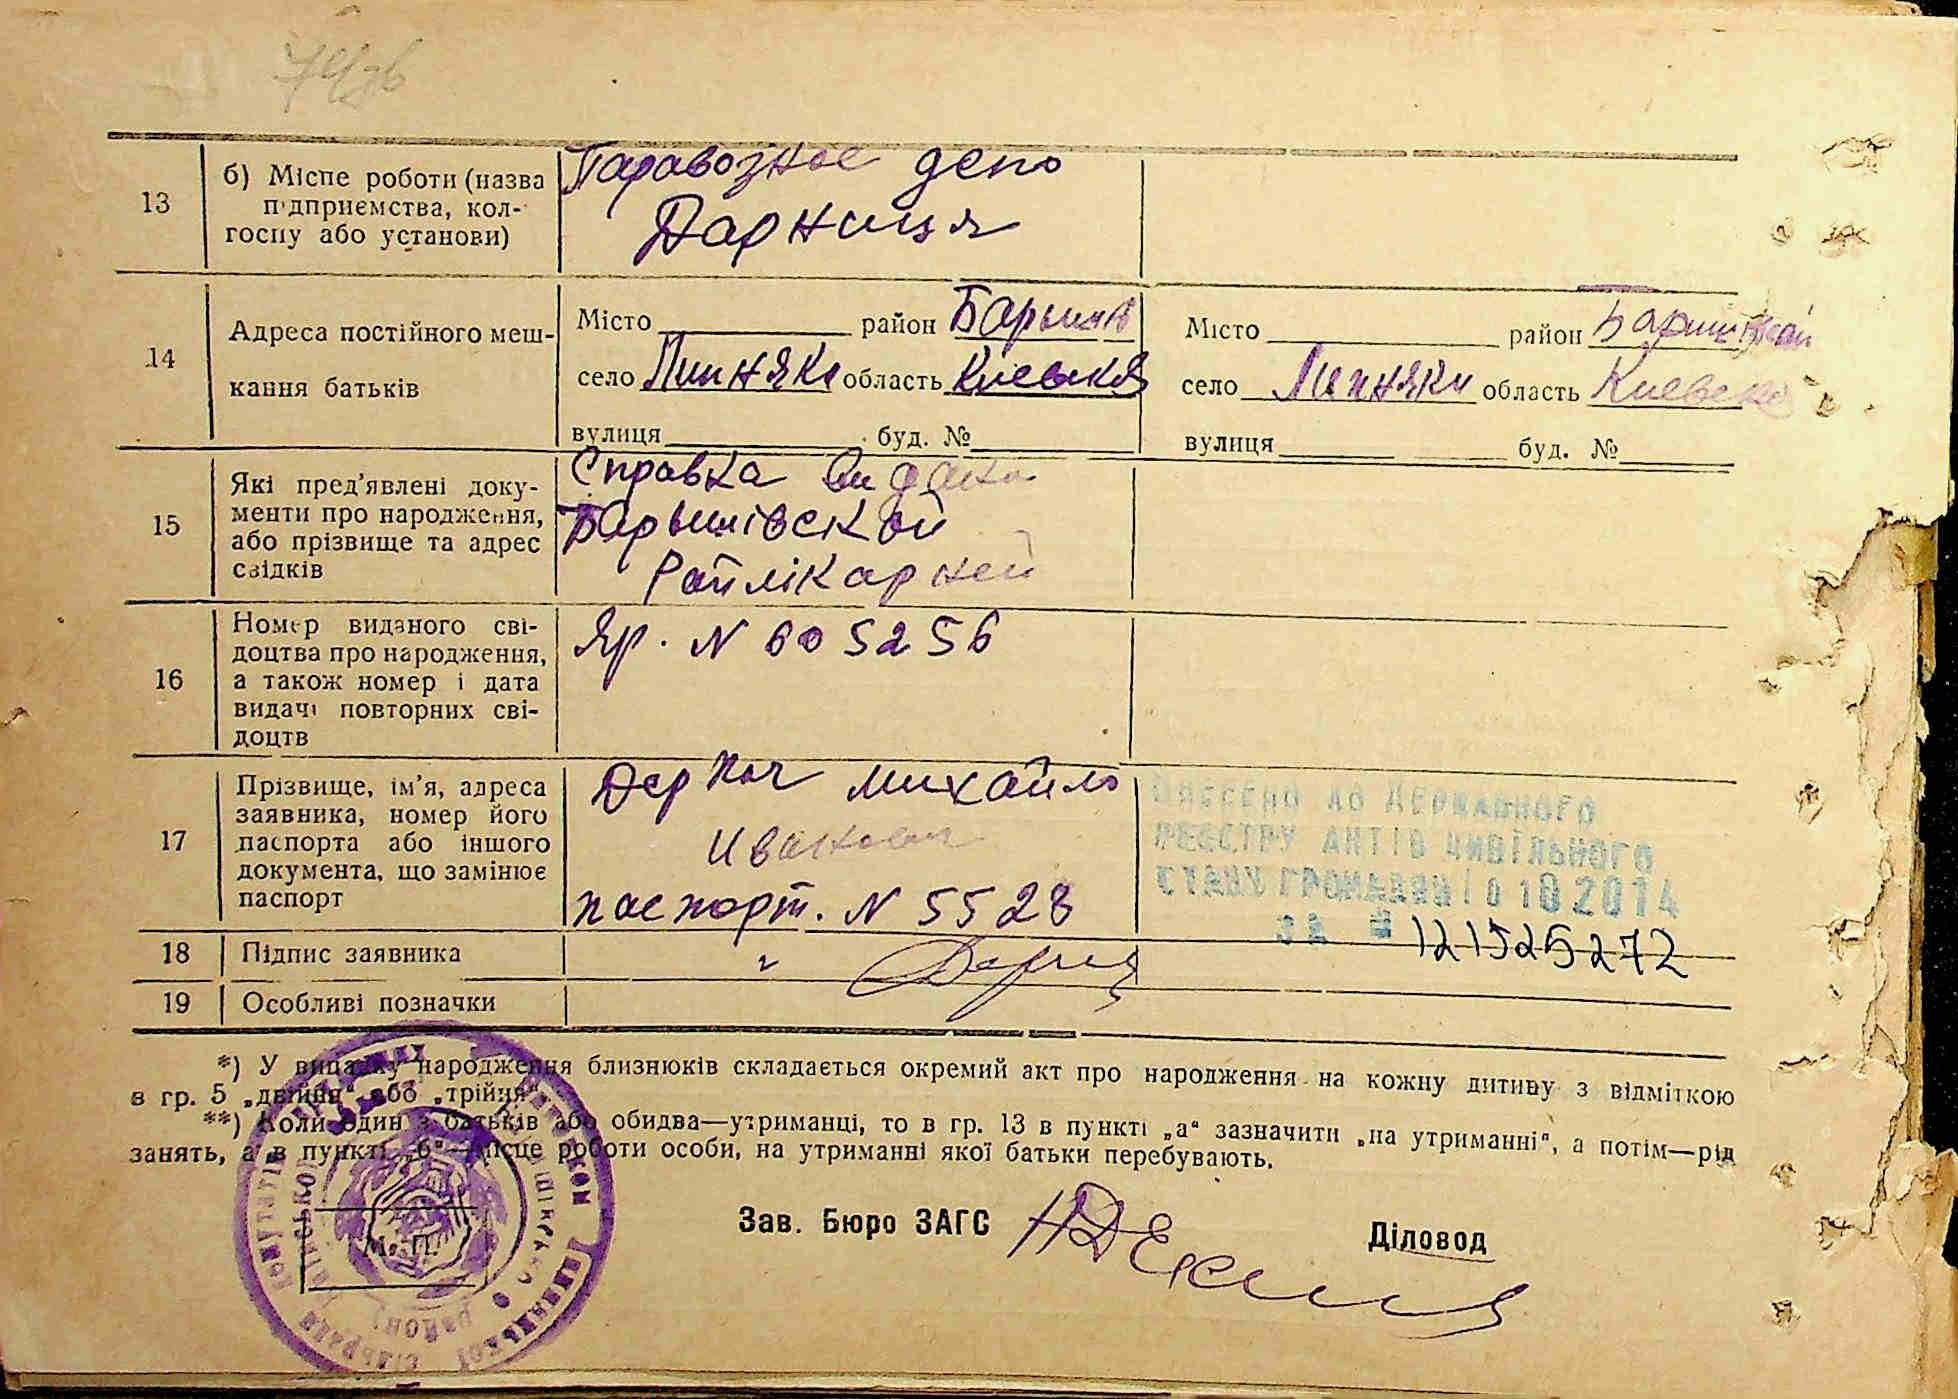 13
б) Місце роботи (назва
підприємства, кол-
госпу або установи)
Паравозное депо
Дарниця
14
Адреса постійного меш-
кання батьків
Місто район Баришів
село Липняки область Киевская
вулиця буд. №
Місто район
село Липняки область Киевска
вулиця буд. №
15
Які пред'явлені доку-
менти про народження,
або прізвище та адрес
свідків
Справка видана
Барышівской
Райлікарней
16
Номер виданого сві-
доцтва про народження,
а також номер і дата
видачі повторних сві-
доцтв
Яр. N 605256
17
Прізвище, ім'я, адреса
заявника, номер його
паспорта або іншого
документа, що замінює
паспорт
Деркач Михайло
Иванович
паспорт. N 5528
ВНЕСЕНО ДО ДЕРЖАВНОГО
РЕЄСТРУ АКТІВ ЦИВІЛЬНОГО
СТАНУ ГРОМАДЯН 10 10 2014
за № 121525272
18
Підпис заявника
19
Особливі позначки
*) У випадку народження близнюків складається окремий акт про народження на кожну дитину з відміткою
в гр. 5 „двійня" або „трійня".
**) Коли один з батьків або обидва—утриманці, то в гр. 13 в пункті „а" зазначити „на утриманні", а потім—рід
занять, а в пункті „б"—місце роботи особи, на утриманні якої батьки перебувають.
Зав. Бюро ЗАГС
Діловод
М. П.